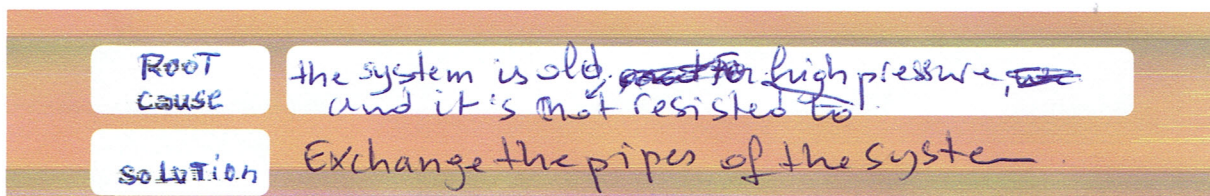 Root
cause
the system is old, high pressure,
and it's not resisted to
solution
Exchange the pipes of the system.